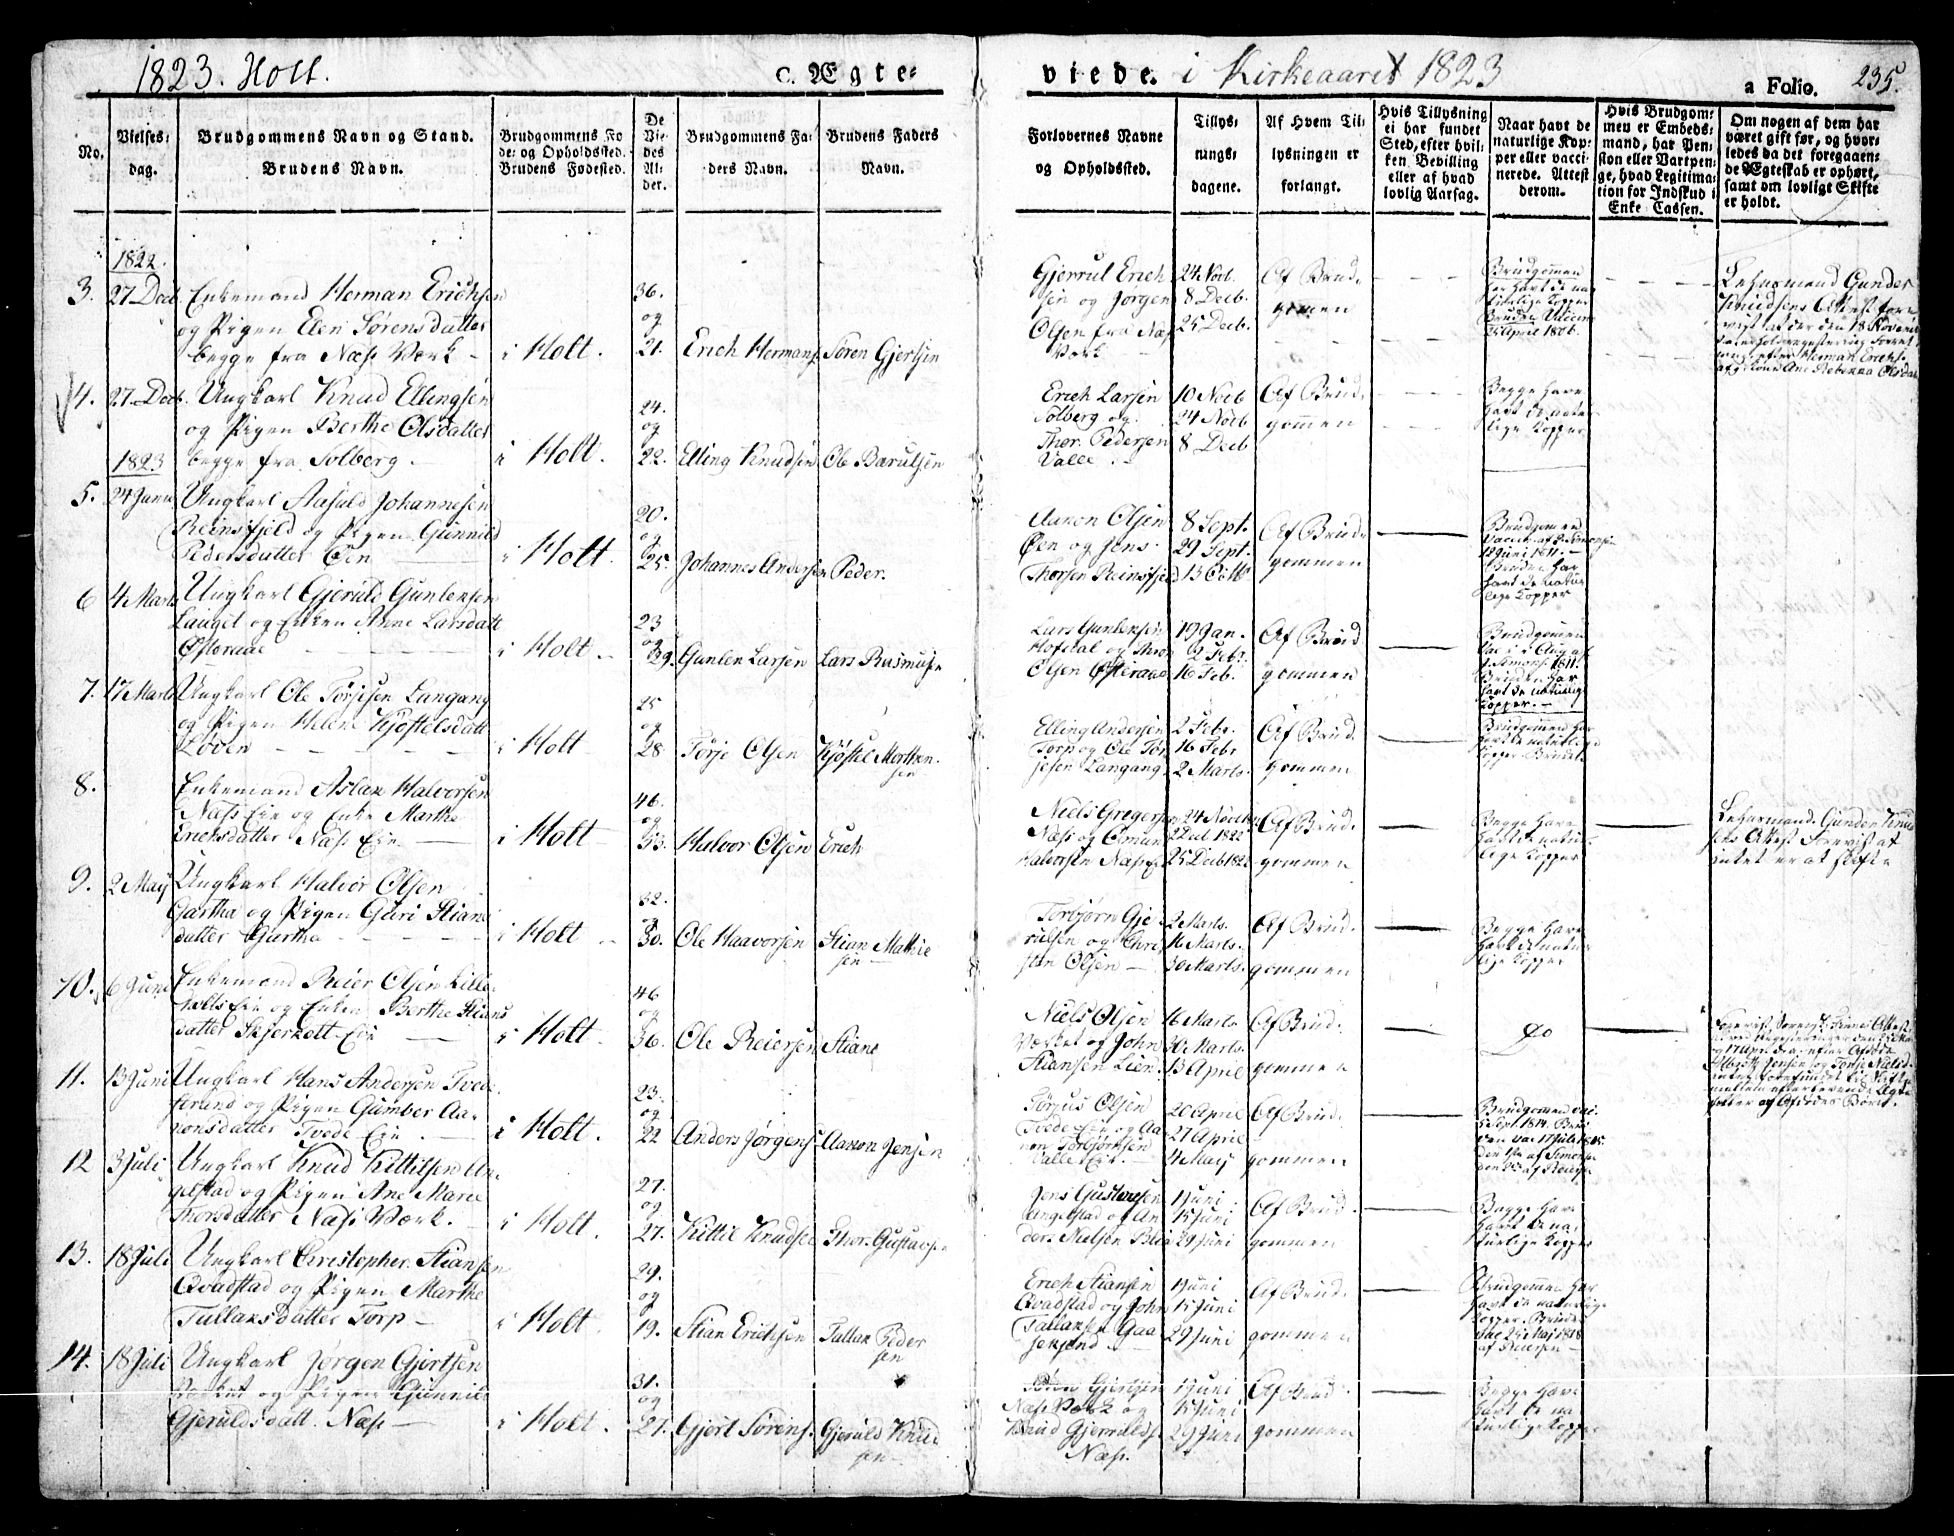 1823. Holt.
C. Ægte-
viede. i Kirkeaaret 1823
a Folio. 235.
No.
Vielses-
dag.
Brudgommens Navn og Stand.
Brudens Navn.
Brudgommens Fø
de- og Opholdssted.
Brudens Fødested.
De
Vie-
des
Al-
der.
Brudgommens Fa-
ders Navn.
Brudens Faders
Navn.
Forlovernes Navne
og Opholdssted.
Tillys-
nings-
dagene.
Af Hvem Til-
lysningen er
forlangt.
Hvis Tillysning
ei har fundet
Sted, efter hvil-
ken Bevilling
eller af hvad
lovlig Aarsag.
Naar havt de
naturlige Kop-
per eller vacci-
nerede. Attest
derom.
Hvis Brudgom-
men er Embeds-
mand, har Pen-
sion eller Vartpen-
ge, hvad Legitima-
tion for Indskud i
Enke Cassen.
Om nogen af dem har
været gift før, og hvor-
ledes da det foregaaen-
de Ægteskab er ophørt,
samt om lovligt Skifte
er holdt.
1822.
3. 27 Decb. Enkemand Herman Erichsen
og Pigen Elen Sørensdatter
begge fra Næss Værk
i Holt.
36.
og
21.
Erich Hermans. Søren Gjertsen
Gjerrul Erich
sen og Jørgen
Olsen fra Næs
Værk
24 Novb.
8 Decb.
25 Decb.
Af Brud-
gomen
Brudgomen
har havt de na
turlige Kopper
Bruden Vaccin
April 1806.
Lehnsmand Gunder
Knudsens Attest fore
vist
4. 27 Decb. Ungkarl Knud Ellingsen
og Pigen Berthe Olsdatter
begge fra Solberg
i Holt.
24.
og
22.
Elling Knudsen Ole Barulsen
Erich Larsen
Solberg og
Thor Pedersen
Valle
10 Novb
24 Novb
8 Decb
Af Brud-
gommen
Begge have
havt de natur
lige Kopper
1823
5. 24 Janu Ungkarl Aasuld Johannesen
Reinsfjeld og Pigen Gunnild
Pedersdatter Øen
i Holt.
20.
og
25.
Johannes Andersen Peder.
Aaron Olsen
Øen og Jens
Thorsen Reinsfjeld
8 Sept.
29 Sept.
13 Octb
Af Brud-
gommen
Brudgomen
Vaccin. af Simonsen
12 Juni 1811.
Bruden har
havt de natur
lige Kopper
6 4 Marts Ungkarl Gjeruld Gunlensen
Lauget og Enken Anne Larsdatt
Østeraae
i Holt
23
og
39.
Gunlen Larsen Lars Rasmuse
Lars Gunlensen
Hofdal og Thor
Olsen Østeraae
19 Jan.
2 Feb.
16 Feb.
Af Brud
gommen
Brudgomen
Simons. 1811.
Bruden har
havt de naturlige
Kopper.
7. 17 Marts Ungkarl Ole Tørjesen Langang
og Pigen Helene Kjøstelsdatt
Løven
i Holt
25
og
28
Tørje Olsen Kjøstel Morthen-
sen
Elling Andersen
Torp og Ole Tør
jesen Langang
2 Febr.
16 Febr
2 Marts.
Af Brud-
gommen
Brudgomen har
havt de naturlige
Kopper
8. Enkemand Aslak Halvorsen
Næss Eie og Enke Marthe
Erichsdatter Næss Eie
i Holt
46.
og
53.
Halvor Olsen Erich
Niels Gregersen
Næss og Omund
Halvorsen Næss
24 Novemb
2 Decb 1822
25 Decb 1822
Af Brud-
gommen
Begge have
havt de natur
lige Kopper
Lehnsmand Gunder Knud
sens Attest Forevist at
intet er at skifte
9. 2 Maij Ungkarl Halvor Olsen
Gartha og Pigen Guri Stians
datter Gartha
i Holt
32.
og
30.
Ole Haavorsen Stian Mathie
sen
Torbjørn Gje
rulsen og Chri
sten Olsen
2 Marts.
16 Marts.
30 Marts.
Af Brud-
gommen
Begge have
havt de natur
lige Kopper
10. 6 Juni Enkemand Reier Olsen Lille-
holts Eie og Enken Berthe Stians
datter Skjerkolt Eie
i Holt
46
og
36.
Ole Reiersen Stian
Niels Olsen
Værket og John
Stiansen Lien
16 Marts
30 Marts.
13 April
Af Brud-
gommen
Do
11. 13 Juni Ungkarl Hans Andersen Tvede-
strand og Pigen Gumber Aa-
ronsdatter Tvede Eie
i Holt.
23.
og
22
Anders Jørgens. Aaron Jensen
Tørjus Olsen
Tvede Eie og Aa
ron Torbjørnsen
Valle Eie
20 April
27 April
4 Maij
Af Brud-
gommen
Brudgomen vac.
5 Sept. 1814. Bru
den vac 17 Juli 1815.
12 3 Juli Ungkarl Knud Kittilsen An-
gelstad og Pigen Ane Marie
Thorsdatter Næss Værk.
i Holt.
27.
og
27.
Kittil Knudsen Thor Gustavsen
Jens Gustavsen
Angelstad og An
ders Nielsen
1 Juni
15 Juni
29 Juni
Af Brud-
gommen
Begge have
havt de na-
turlige Kopper
13. 18 Juli Ungkarl Christopher Stiansen
Qvadstad og Pigen Marthe
Tallaksdatter Torp
i Holt.
29.
og
19.
Stian Erichsen Tallak Peder
sen
Erich Stiansen
Qvadstad og John
Tallaksen Gaa
seksund
1 Juni
15 Juni
29 Juni
Af Brud-
gommen
Brudgommen har
havt de naturlige
Kopper. Bruden
vac 24 Maj 1818
af Reiersen
14. 18 Juli Ungkarl Jørgen Gjertsen
Værket og Pigen Gunnil
Gjeruldsdatt. Næss
i Holt.
31.
og
27.
Gjert Sørens. Gjeruld Knud
sen
Søren Gjertsen
Næss Værk og
Knud Gjerruldse
Næss.
1 Juni
15 Juni
29 Juni
Af Brud-
gommen
Begge have
havt de na
turlige Kopper